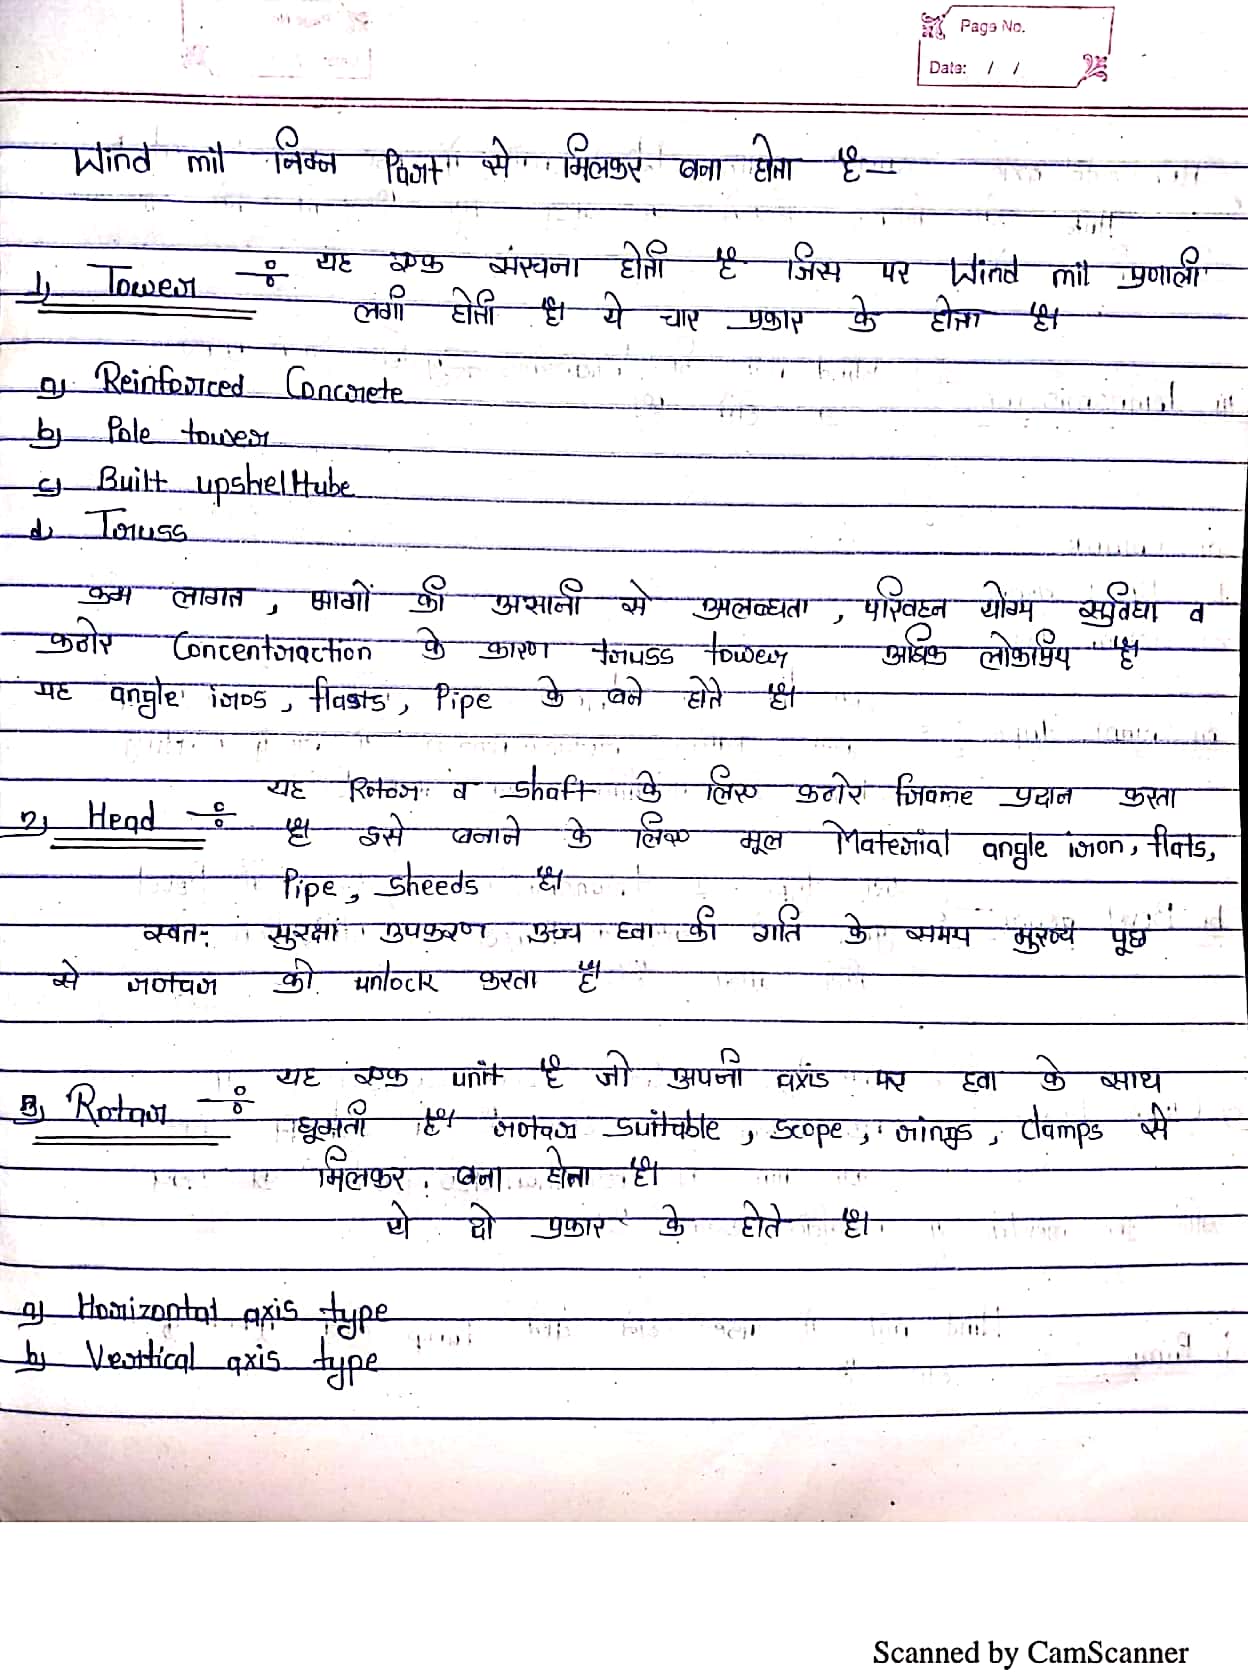 Page No.
Date: / /
Wind mil निम्न Part से मिलकर बना होता है—
1) Tower ÷ यह एक संरचना होती है जिस पर Wind mil प्रणाली
लगी होती है। ये चार प्रकार के होता है।
a) Reinforced Concrete
b) Pole tower
c) Built upshelltube
d) Truss
कम लागत, भागों की असानी से उपलब्धता, परिवहन योग्य सुविधा व
कठोर Concentraction के कारण truss tower अधिक लोकप्रिय है
यह angle iros, flasts, Pipe के बने होते है।
2) Head ÷ यह रोटर व shaft के लिए कठोर frame प्रदान करता
है। इसे बनाने के लिए मूल Material angle iron, flats,
Pipe, sheeds है।
स्वतः सुरक्षा उपकरण उच्च हवा की गति के समय मुख्य पूछ
से को unlock करता है
3) Rotar ÷ यह एक unit है जो अपनी axis पर हवा के साथ
घूमती है। suitable, scope, rings, clamps से
मिलकर बना होता है।
ये दो प्रकार के होते है।
a) Horizontal axis type
b) Vertical axis type
Scanned by CamScanner